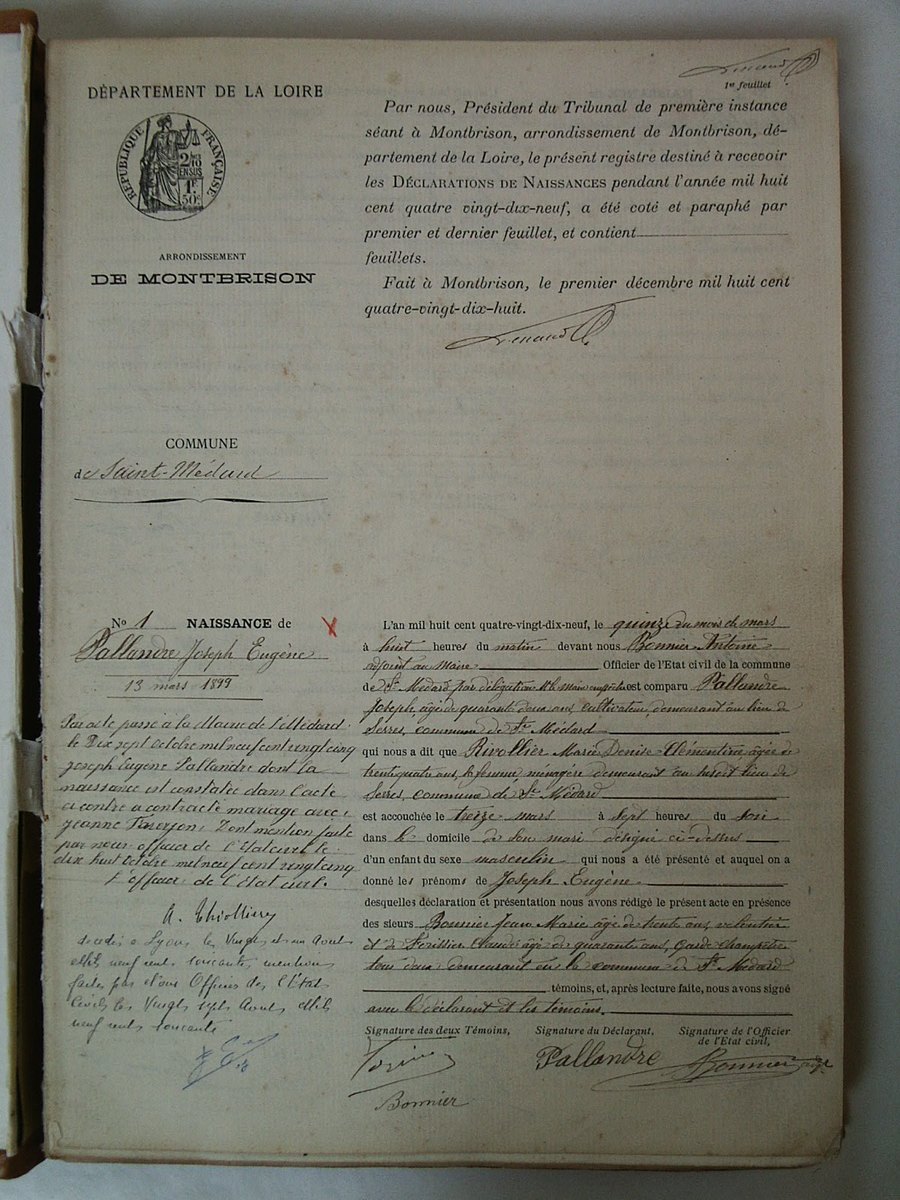 DÉPARTEMENT DE LA LOIRE
RÉPUBLIQUE FRANÇAISE
EN SUS
1F
50c
ARRONDISSEMENT
DE MONTBRISON
COMMUNE
de Saint-Médard
1er feuillet
Par nous, Président du Tribunal de première instance
séant à Montbrison, arrondissement de Montbrison, dé-
partement de la Loire, le présent registre destiné à recevoir
les DÉCLARATIONS DE NAISSANCES pendant l'année mil huit
cent quatre vingt-dix-neuf, a été coté et paraphé par
premier et dernier feuillet, et contient
feuillets.
Fait à Montbrison, le premier décembre mil huit cent
quatre-vingt-dix-huit.
No 1 NAISSANCE de
Pallandre Joseph Eugène
13 mars 1899
Par acte passé à la Mairie de St Médard
le Dix sept Octobre mil neuf cent vingt cinq
Joseph Eugène Pallandre dont la
naissance est constatée dans l'acte
ci contre a contracté mariage avec
Jeanne Dont mention faite
par nous officier de l'état civil le
dix huit Octobre mil neuf cent vingt cinq
L'officier de l'état civil.
A. Thiollier
décédé à Lyon le Vingt et un Août
Mil neuf cent soixante, mention
faite par Nous Officier de l'État
Civil le Vingt sept Août Mil
neuf cent soixante
L'an mil huit cent quatre-vingt-dix-neuf, le quinze du mois de mars
à huit heures du matin devant nous Bonnier Antoine
adjoint au maire Officier de l'Etat civil de la commune
de St Médard par délégation de Mr le maire est comparu Pallandre
Joseph, âgé de quarante deux ans, cultivateur, demeurant au lieu de
Serres, commune de St Médard
qui nous a dit que Rivollier Marie Denise Clémentine âgée de
trente quatre ans, sa femme ménagère demeurant au susdit lieu de
Serres, commune de St Médard
est accouchée le treize mars à sept heures du soir
dans le domicile de son mari désigné ci-dessus
d'un enfant du sexe masculin qui nous a été présenté et auquel on a
donné les prénoms de Joseph Eugène
desquelles déclaration et présentation nous avons rédigé le présent acte en présence
des sieurs Bonnier Jean Marie âgé de trente ans,
et de Claude âgé de quarante ans, garde champêtre
tous deux demeurant en la commune de St Médard
témoins, et, après lecture faite, nous avons signé
avec le déclarant et les témoins.
Signature des deux Témoins, Signature du Déclarant, Signature de l'Officier
de l'Etat civil,
Pallandre Bonnier
Bonnier